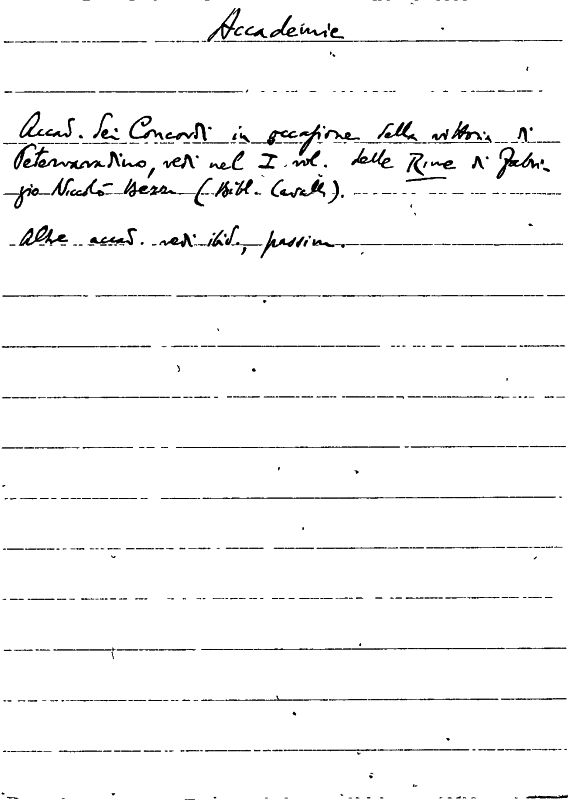 Accademie
Accad. dei Concordi in occasione della vittoria di
Petervaradino, vedi nel I vol. delle Rime di Fabri-
zio Nicolò Bezzi (Bibl. Cavalli).
Altre accad. vedi ibid., passim.